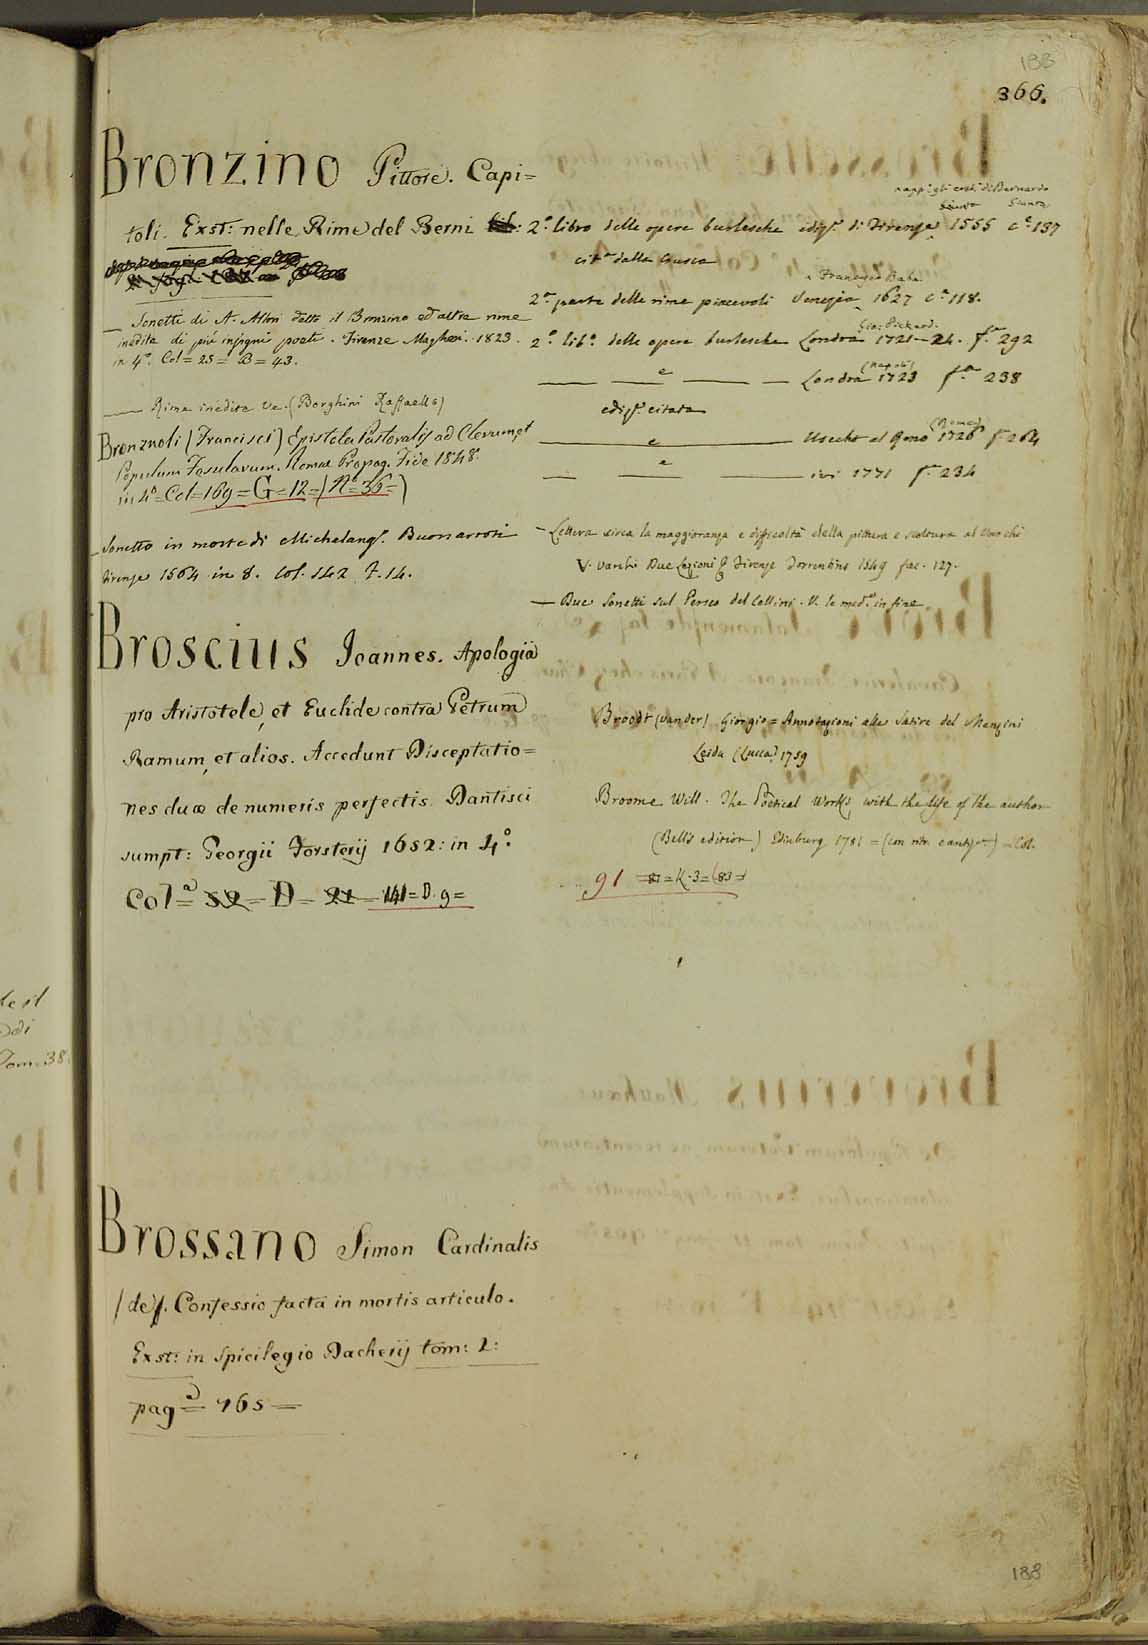 188
366.
Bronzino Pittore. Capi=
toli. Exst: nelle Rime del Berni
— Sonetti di A. Allori detto il Bronzino ed altre rime
inedite di più insigni poeti. Firenze Magheri. 1823.
in 4.º Col= 25= B= 43.
— Rime inedite Ve. (Borghini Raffaello)
Bronzuoli (Francisci) Epistola Pastoralis ad Clerum et
Populum Fesulanum. Romae Propag. Fide 1848.
in 4º= Col=169=G=12=(Nº=36=)
— Sonetto in morte di Michelang. Buonarroti
Firenze 1564 in 8. Col. 142. F. 14.
Broscius Joannes. Apologia
pro Aristotele, et Euclide contra Petrum
Ramum, et alios. Accedunt Disceptatio=
nes duæ de numeris perfectis. Dantisci
sumpt: Georgii Forsterij 1652: in 4.º
Colª= 52= D= 21= 141= D. 9=
Brossano Simon Cardinalis
(de). Confessio facta in mortis articulo.
Exst: in Spicilegio Dacherij tom: 2:
pagª= 765=
appº gli eredi di Bernardo
Giunta
2.º libro delle opere burlesche ediz. di Firenze 1555 cª 137
citª dalla Crusca
a Francesco Baba
2ª parte delle rime piacevoli Venezia 1627 cª 118.
Gio: Pickard.
2.º libº. delle opere burlesche Londra 1721-24. fª 292
(Napoli)
— e — Londra 1723 fª 238
ediz. citata
(Roma)
— e — Usecht al Reno 1726 fª 264
— e — ivi 1771 fª 234
— Lettera circa la maggioranza e difficoltà della pittura e scoltura al Varchi
V. Varchi Due Lezioni & Firenze Torrentino 1549 fac. 127.
— Due Sonetti sul Perseo del Cellini. V. le medº in fine.
Broodt (vander) Giorgio= Annotazioni alle Satire del Menzini
Leida (Lucca) 1759
Broome Will. The Poetical Works with the life of the author
(Bell's edition) Edinburg 1781 = = Col.
91 = 81 = K-3=(83=)
188